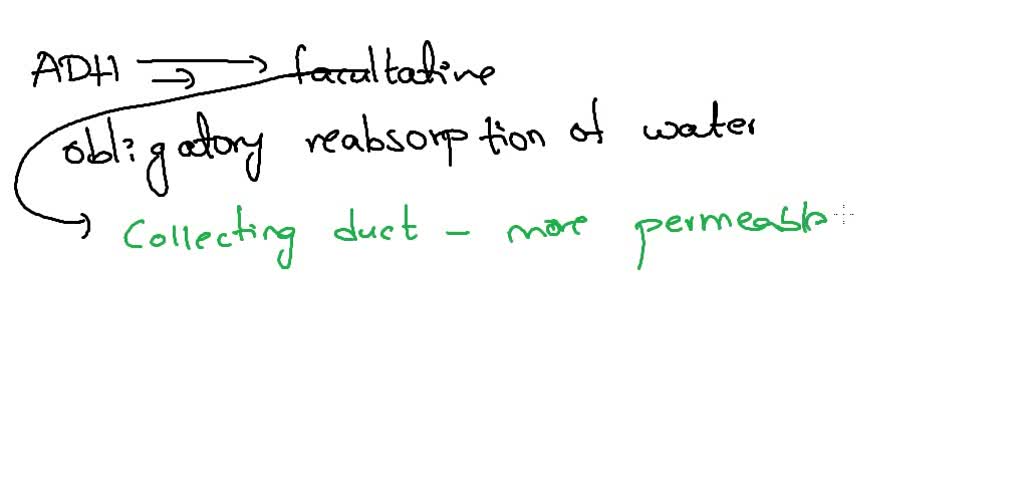 ADH → → facultative
obligatory reabsorption of water
→ Collecting duct - more permeabl